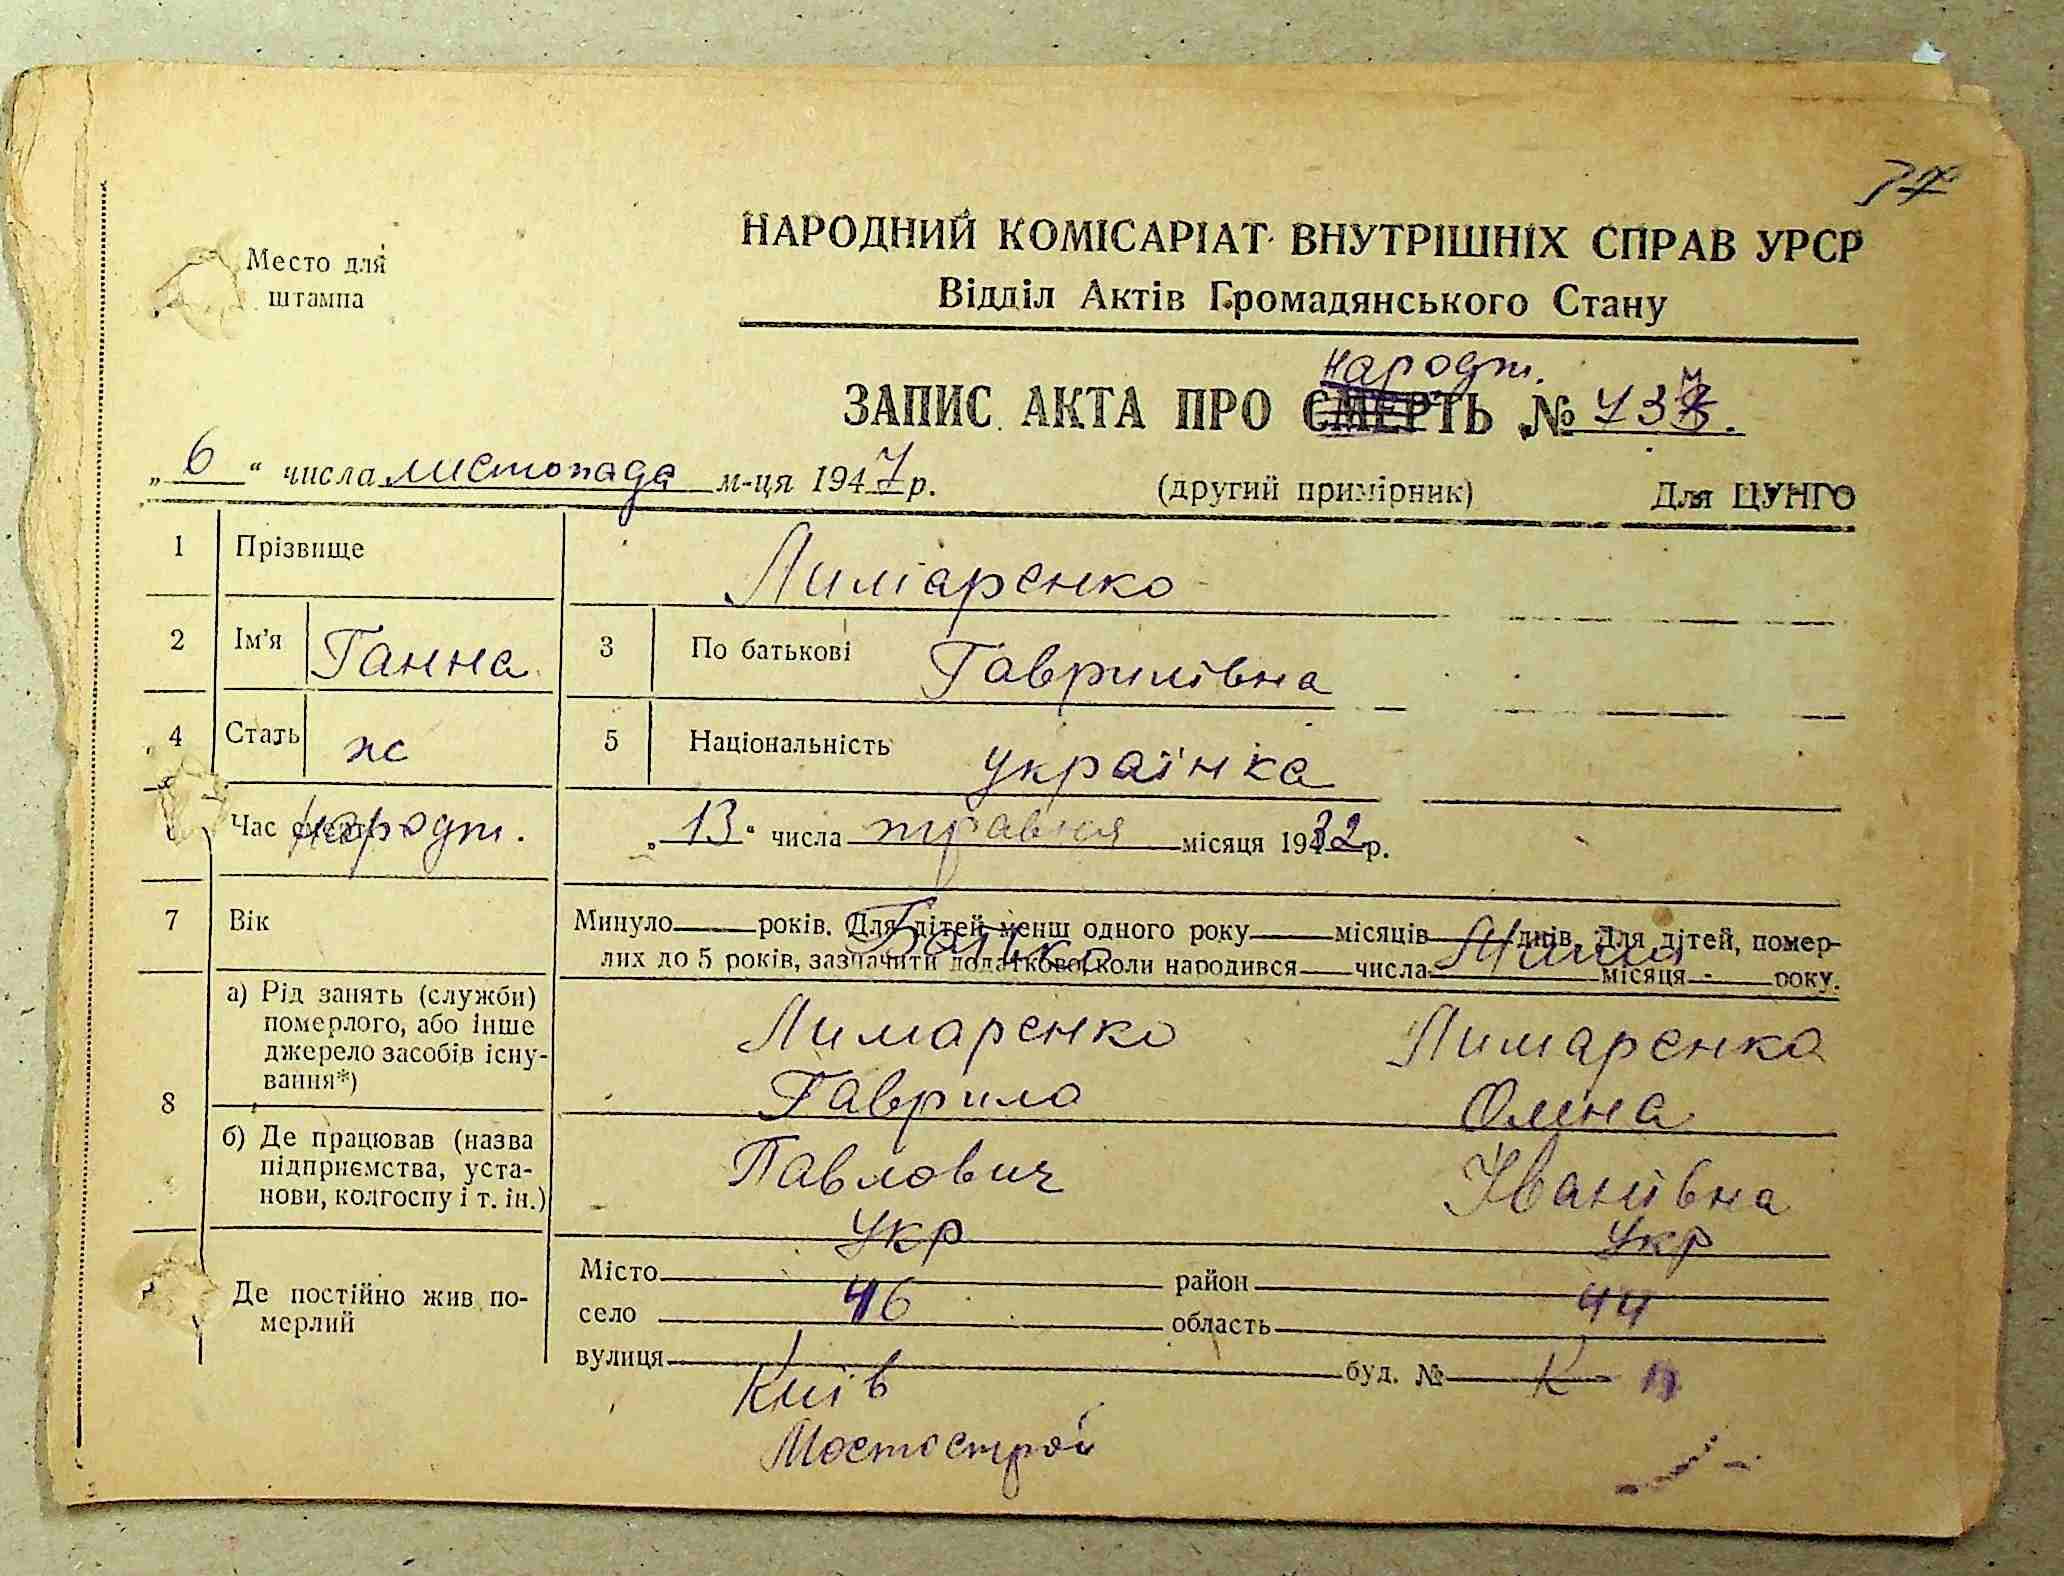 Место для
штампа
НАРОДНИЙ КОМІСАРІАТ ВНУТРІШНІХ СПРАВ УРСР
Відділ Актів Громадянського Стану
народж.
ЗАПИС АКТА ПРО СМЕРТЬ №
„6“ числа листопада м-ця 1947 р. (другий примірник) Для ЦУНГО
1 Прізвище Лимаренко
2 Ім'я Ганна 3 По батькові Гаврилівна
4 Стать ж 5 Національність українка
Час народж. „13“ числа травня місяця 1932 р.
7 Вік Минуло років. Для дітей менш одного року місяців днів. Для дітей, померлих до 5 років, зазначити додатково, коли народився числа місяця року.
Батько Мати
8 а) Рід занять (служби)
померлого, або інше
джерело засобів існу-
вання*)
Лимаренко Лимаренко
Гаврило Олена
б) Де працював (назва
підприємства, уста-
нови, колгоспу і т. ін.)
Павлович Іванівна
укр укр
Де постійно жив по-
мерлий
Місто район
46 44
село область
вулиця буд. №
Київ
Мостострой